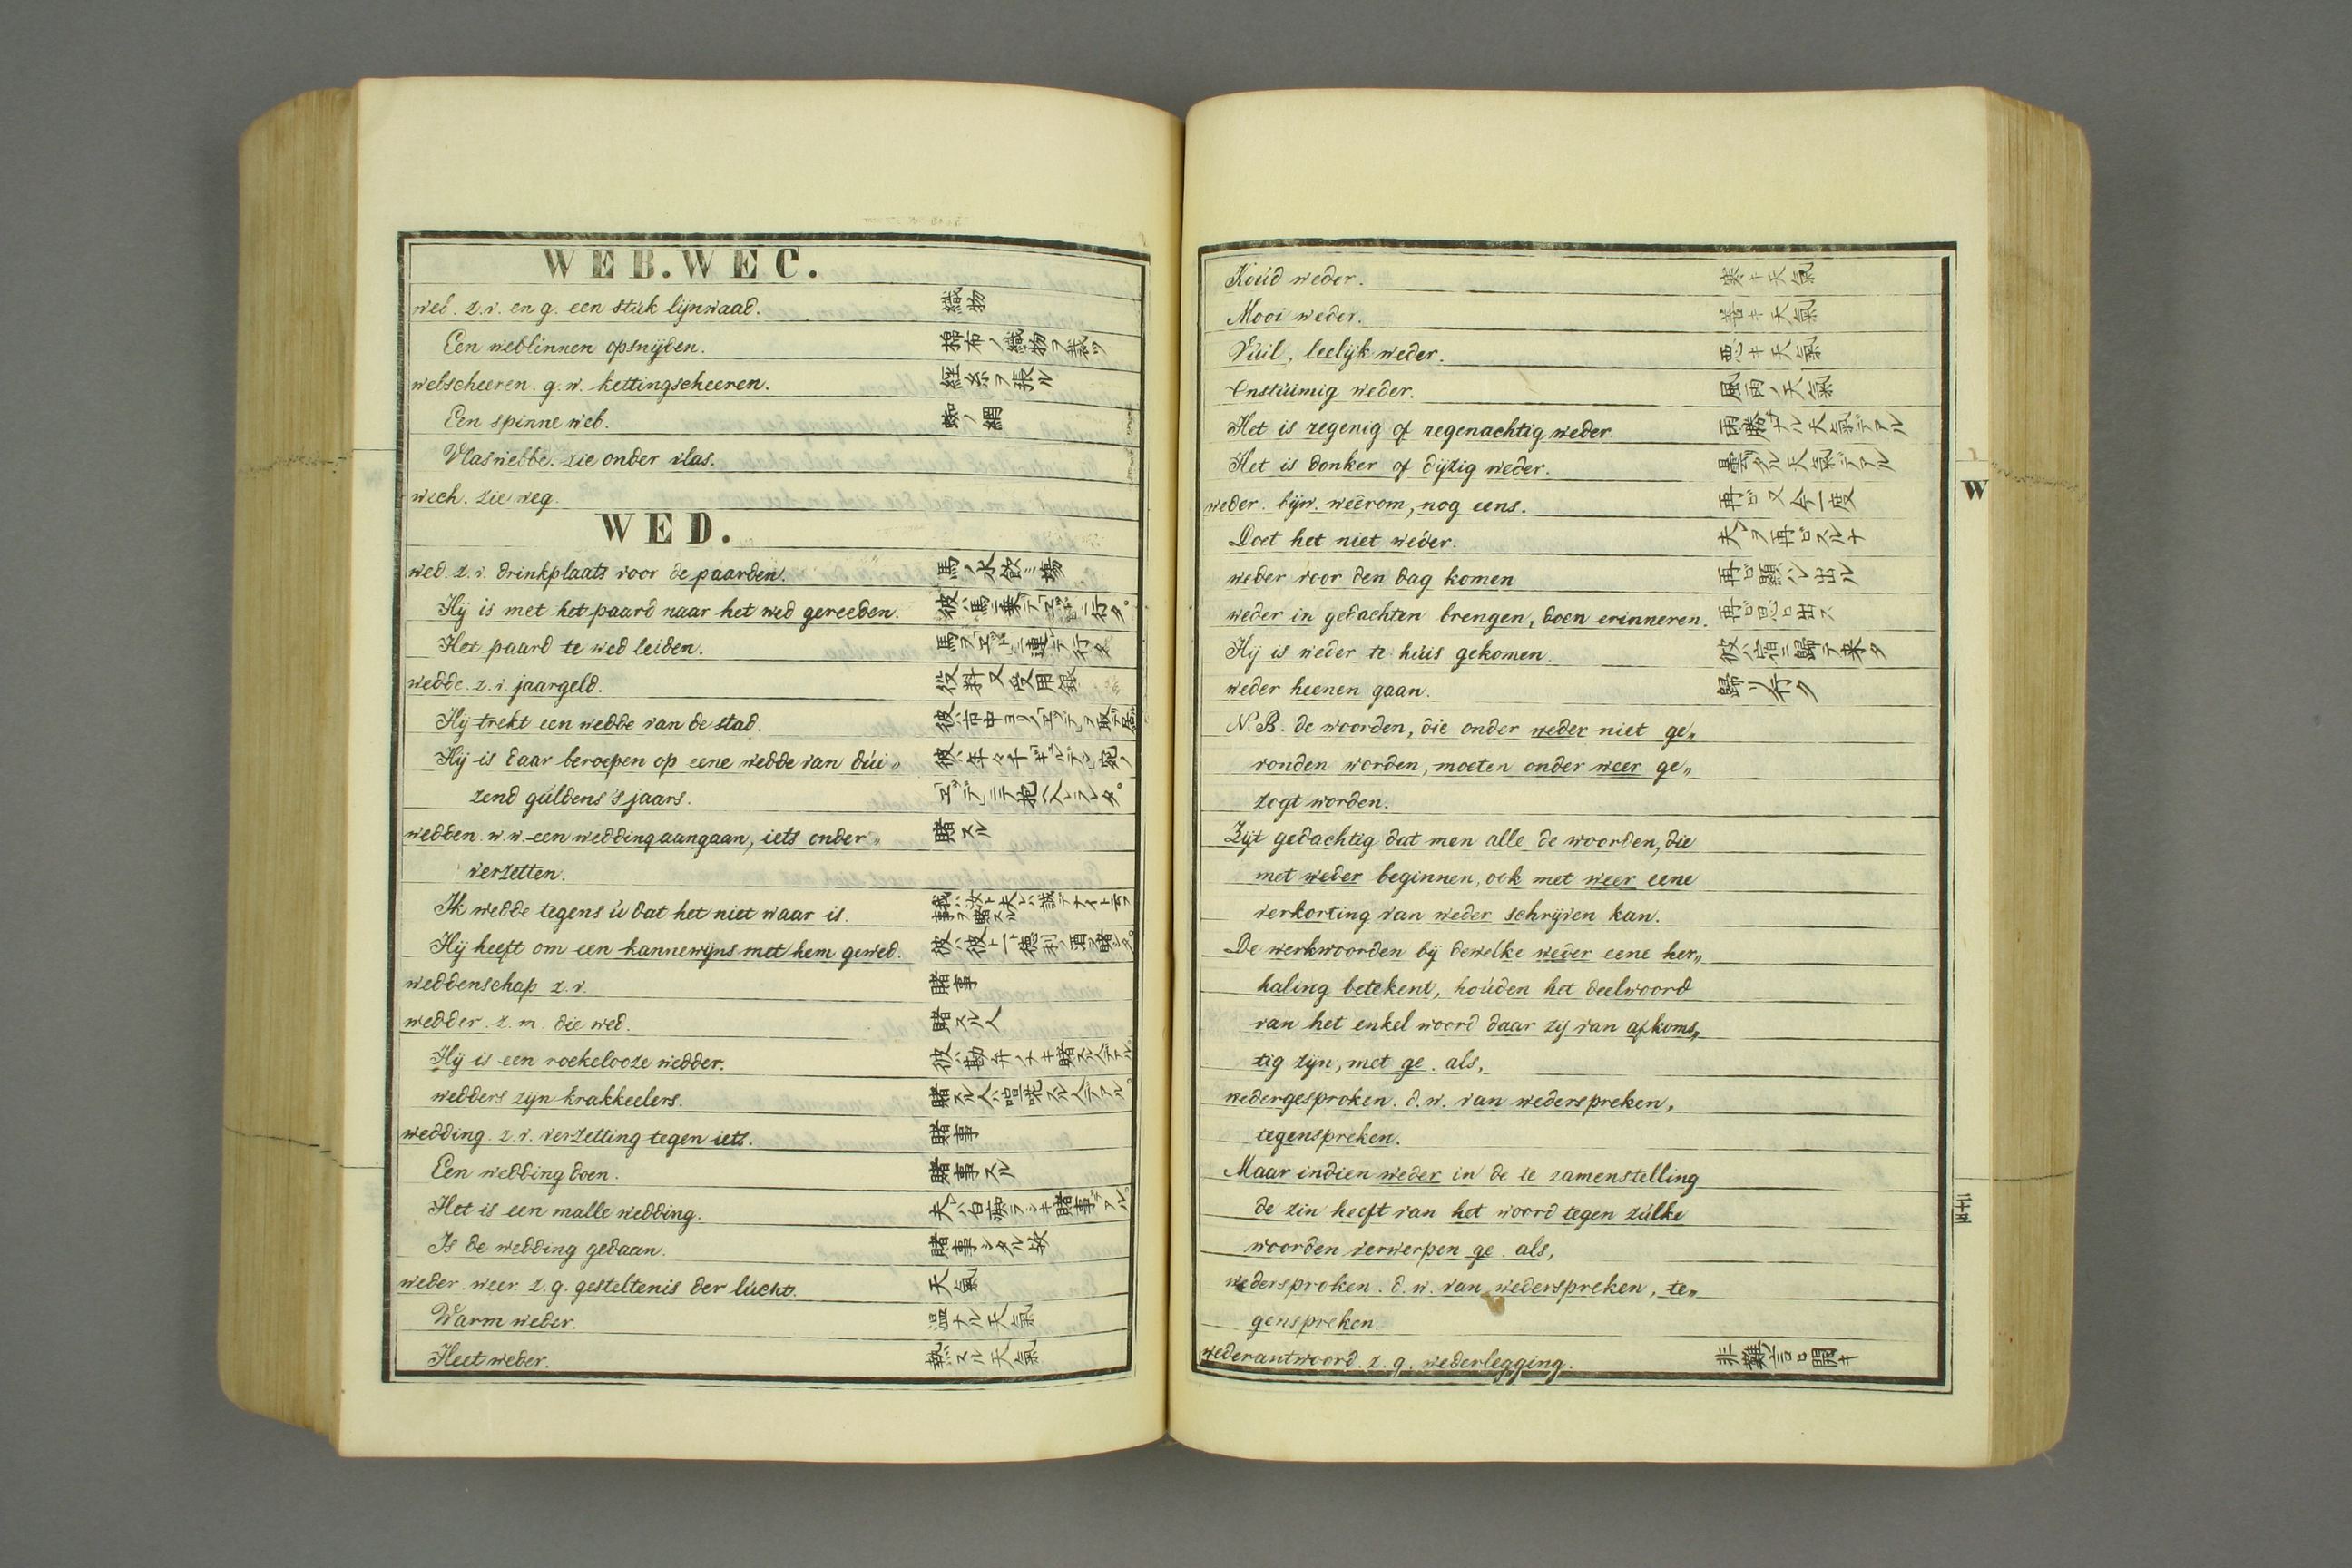 WEB. WEC.
web. z.v. en g. een stúk lijnwaad. 織物
Een weblinnen opsnijden. 棉布ノ織物ヲ裁ツ
webscheeren. g.w. kettingscheeren. 経糸ヲ張ル
Een spinneweb. 蜘ノ網
Vlaswebbe. zie onder vlas.
wech. zie weg.
WED.
wed. z.v. drinkplaats voor de paarden. 馬ノ水飲ミ場
Hij is met het paard naar het wed gereeden.
Het paard te wed leiden.
wedde. z.v. jaargeld. 役料又受用銀
Hij trekt een wedde van de stad.
Hij is daar beroepen op eene wedde van dúi„
zend gúldens 's jaars.
wedden. w.w. een wedding aangaan, iets onder„ 賭スル
verzetten.
Ik wedde tegens ú dat het niet waar is.
Hij heeft om een kannewijns met hem gewed.
weddenschap z.v. 賭事
wedder. z.m. die wed. 賭スル人
Hij is een roekelooze wedder.
wedders zijn krakkeelers.
wedding. z.v. verzetting tegen iets. 賭事
Een wedding doen. 賭事スル
Het is een malle wedding.
Is de wedding gedaan. 賭事シタル歟
weder. weer. z.g. gesteltenis der lúcht. 天氣
Warm weder. 温ナル天氣
Heet weder. 熱スル天氣
Koúd weder. 寒キ天氣
Mooi weder. 善キ天氣
Vúil, leelijk weder. 悪キ天氣
Onstúimig weder. 風雨ノ天氣
Het is regenig of regenachtig weder. 雨勝ナル天氣デアル
Het is donker of dijzig weder.
weder. bijw. weêrom, nog eens. 再ビ又今一度
Doet het niet weder. 夫ヲ再ビスルナ
weder voor den dag komen 再ビ顕ハレ出ル
weder in gedachten brengen, doen erinneren. 再ビ思ヒ出ス
Hij is weder te húis gekomen. 彼ハ宿ニ歸テ来タ
weder heenen gaan. 歸リ行ク
N.B. de woorden, die onder weder niet ge„
vonden worden, moeten onder weer ge„
zogt worden.
Zijt gedachtig dat men alle de woorden, die
met weder beginnen, ook met weer eene
verkorting van weder schrijven kan.
De werkwoorden bij dewelke weder eene her„
haling betekent, hoúden het deelwoord
van het enkel woord daar zij van afkoms„
tig zijn, met ge. als,
wedergesproken. d.w. van wederspreken,
tegenspreken.
Maar indien weder in de te zamenstelling
de zin heeft van het woord tegen zúlke
woorden verwerpen ge. als,
wedersproken. d.w. van wederspreken, te„
genspreken.
wederantwoord. z.g. wederlegging. 非難言ヒ開キ
W